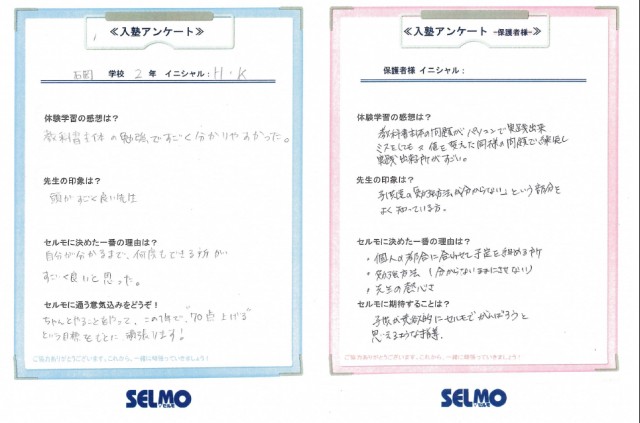 ≪入塾アンケート≫
学校 2 年 イニシャル：H・K
体験学習の感想は？
教科書主体の勉強ですごく分かりやすかった。
先生の印象は？
頭がすごく良い先生
セルモに決めた一番の理由は？
自分が分かるまで、何度もできる所が
すごく良いと思った。
セルモに通う意気込みをどうぞ！
ちゃんとやることをやって、この1年で"70点上げる"
という目標をもとに頑張ります！
ご協力ありがとうございます。これから、一緒に頑張っていきましょう！
SELMO
セルモ
≪入塾アンケート -保護者様-≫
保護者様 イニシャル：
体験学習の感想は？
教科書主体の問題がパソコンで実践出来
ミスをしても 値を変えた同様の問題で繰返し
実践出来る所がすごい。
先生の印象は？
子供達の「勉強方法が分からない」という部分を
よく知っている方。
セルモに決めた一番の理由は？
・個人の都合に合わせて予定を組める所
・勉強方法（分からないままにさせない）
・先生の熱心さ
セルモに期待することは？
子供が意欲的にセルモでがんばろうと
思えるような指導。
ご協力ありがとうございます。これから、一緒に頑張っていきましょう！
SELMO
セルモ